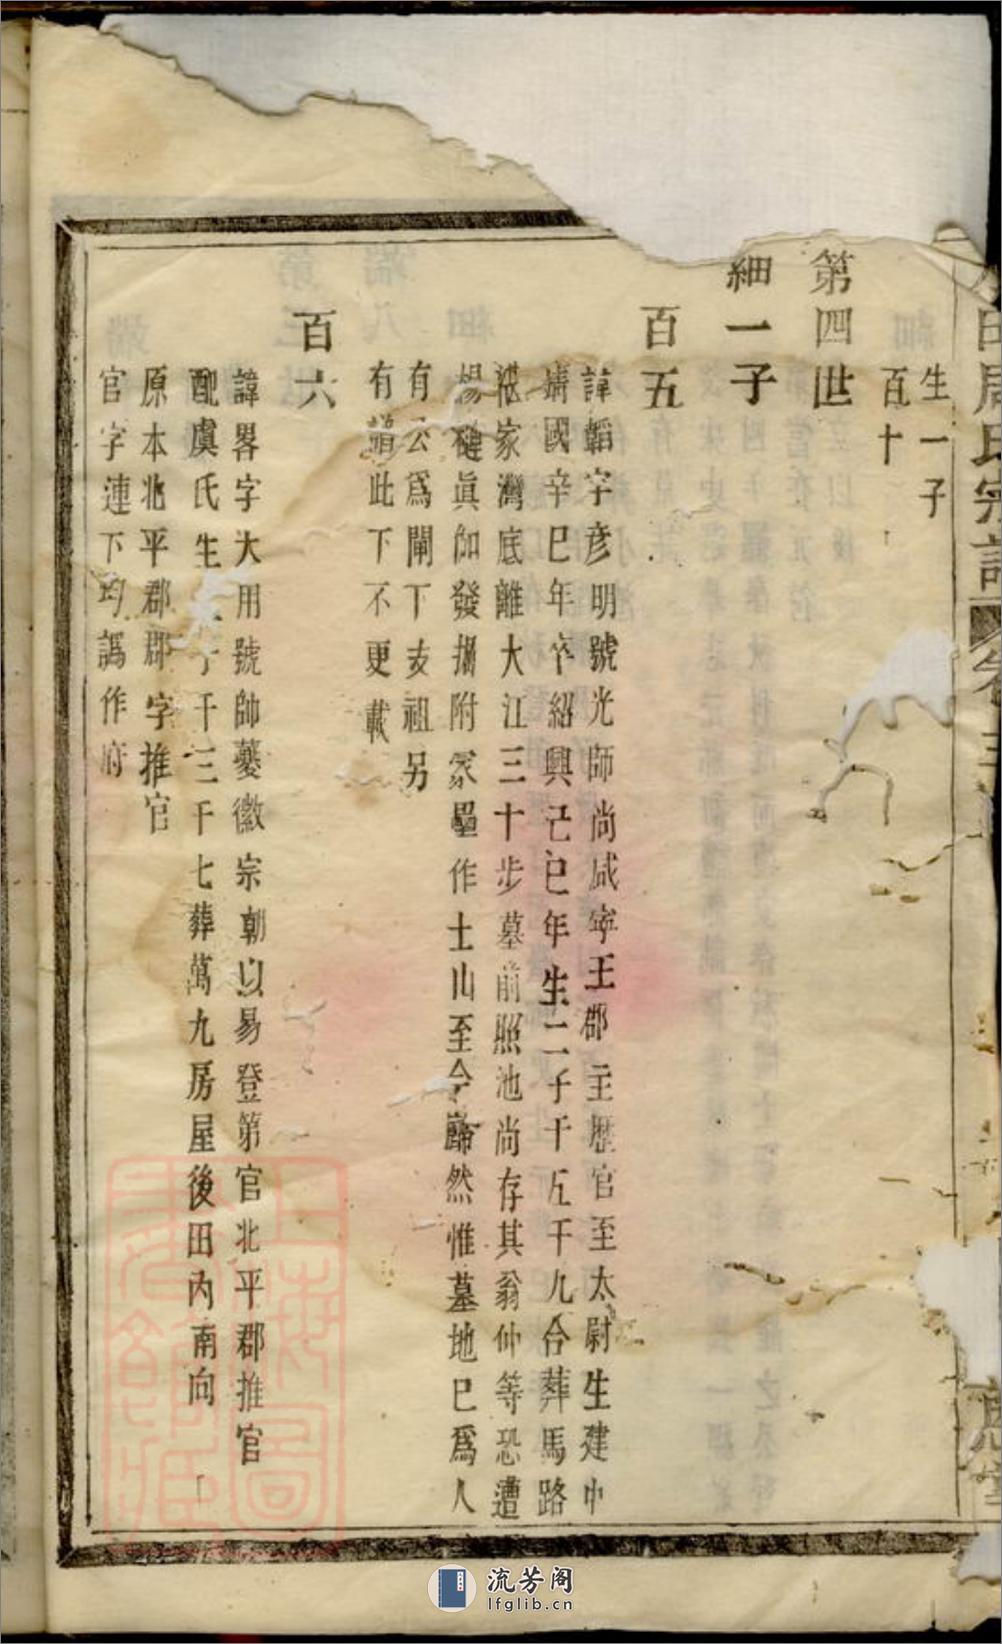 田周氏宗譜
卷
生一子
百十
第四世
細一子
百五
諱韜字彥明號光師尚咸寧王郡主歷官至太尉生建中
靖國辛巳年卒紹興己巳年生二子千五千九合葬馬路
家灣底離大江三十步墓前照池尚存其翁仲等恐遭
楊璉真伽發掘附冢壘作土山至今巋然惟墓地已爲人
有公爲閘下支祖另
有譜此下不更載
百六
諱畧字大用號帥夔徽宗朝以易登第官北平郡推官
配虞氏生子千三千七葬萬九房屋後田內南向
原本北平郡郡字推官
官字連下均譌作府
上海圖書館藏
流芳阁
lfglib.cn